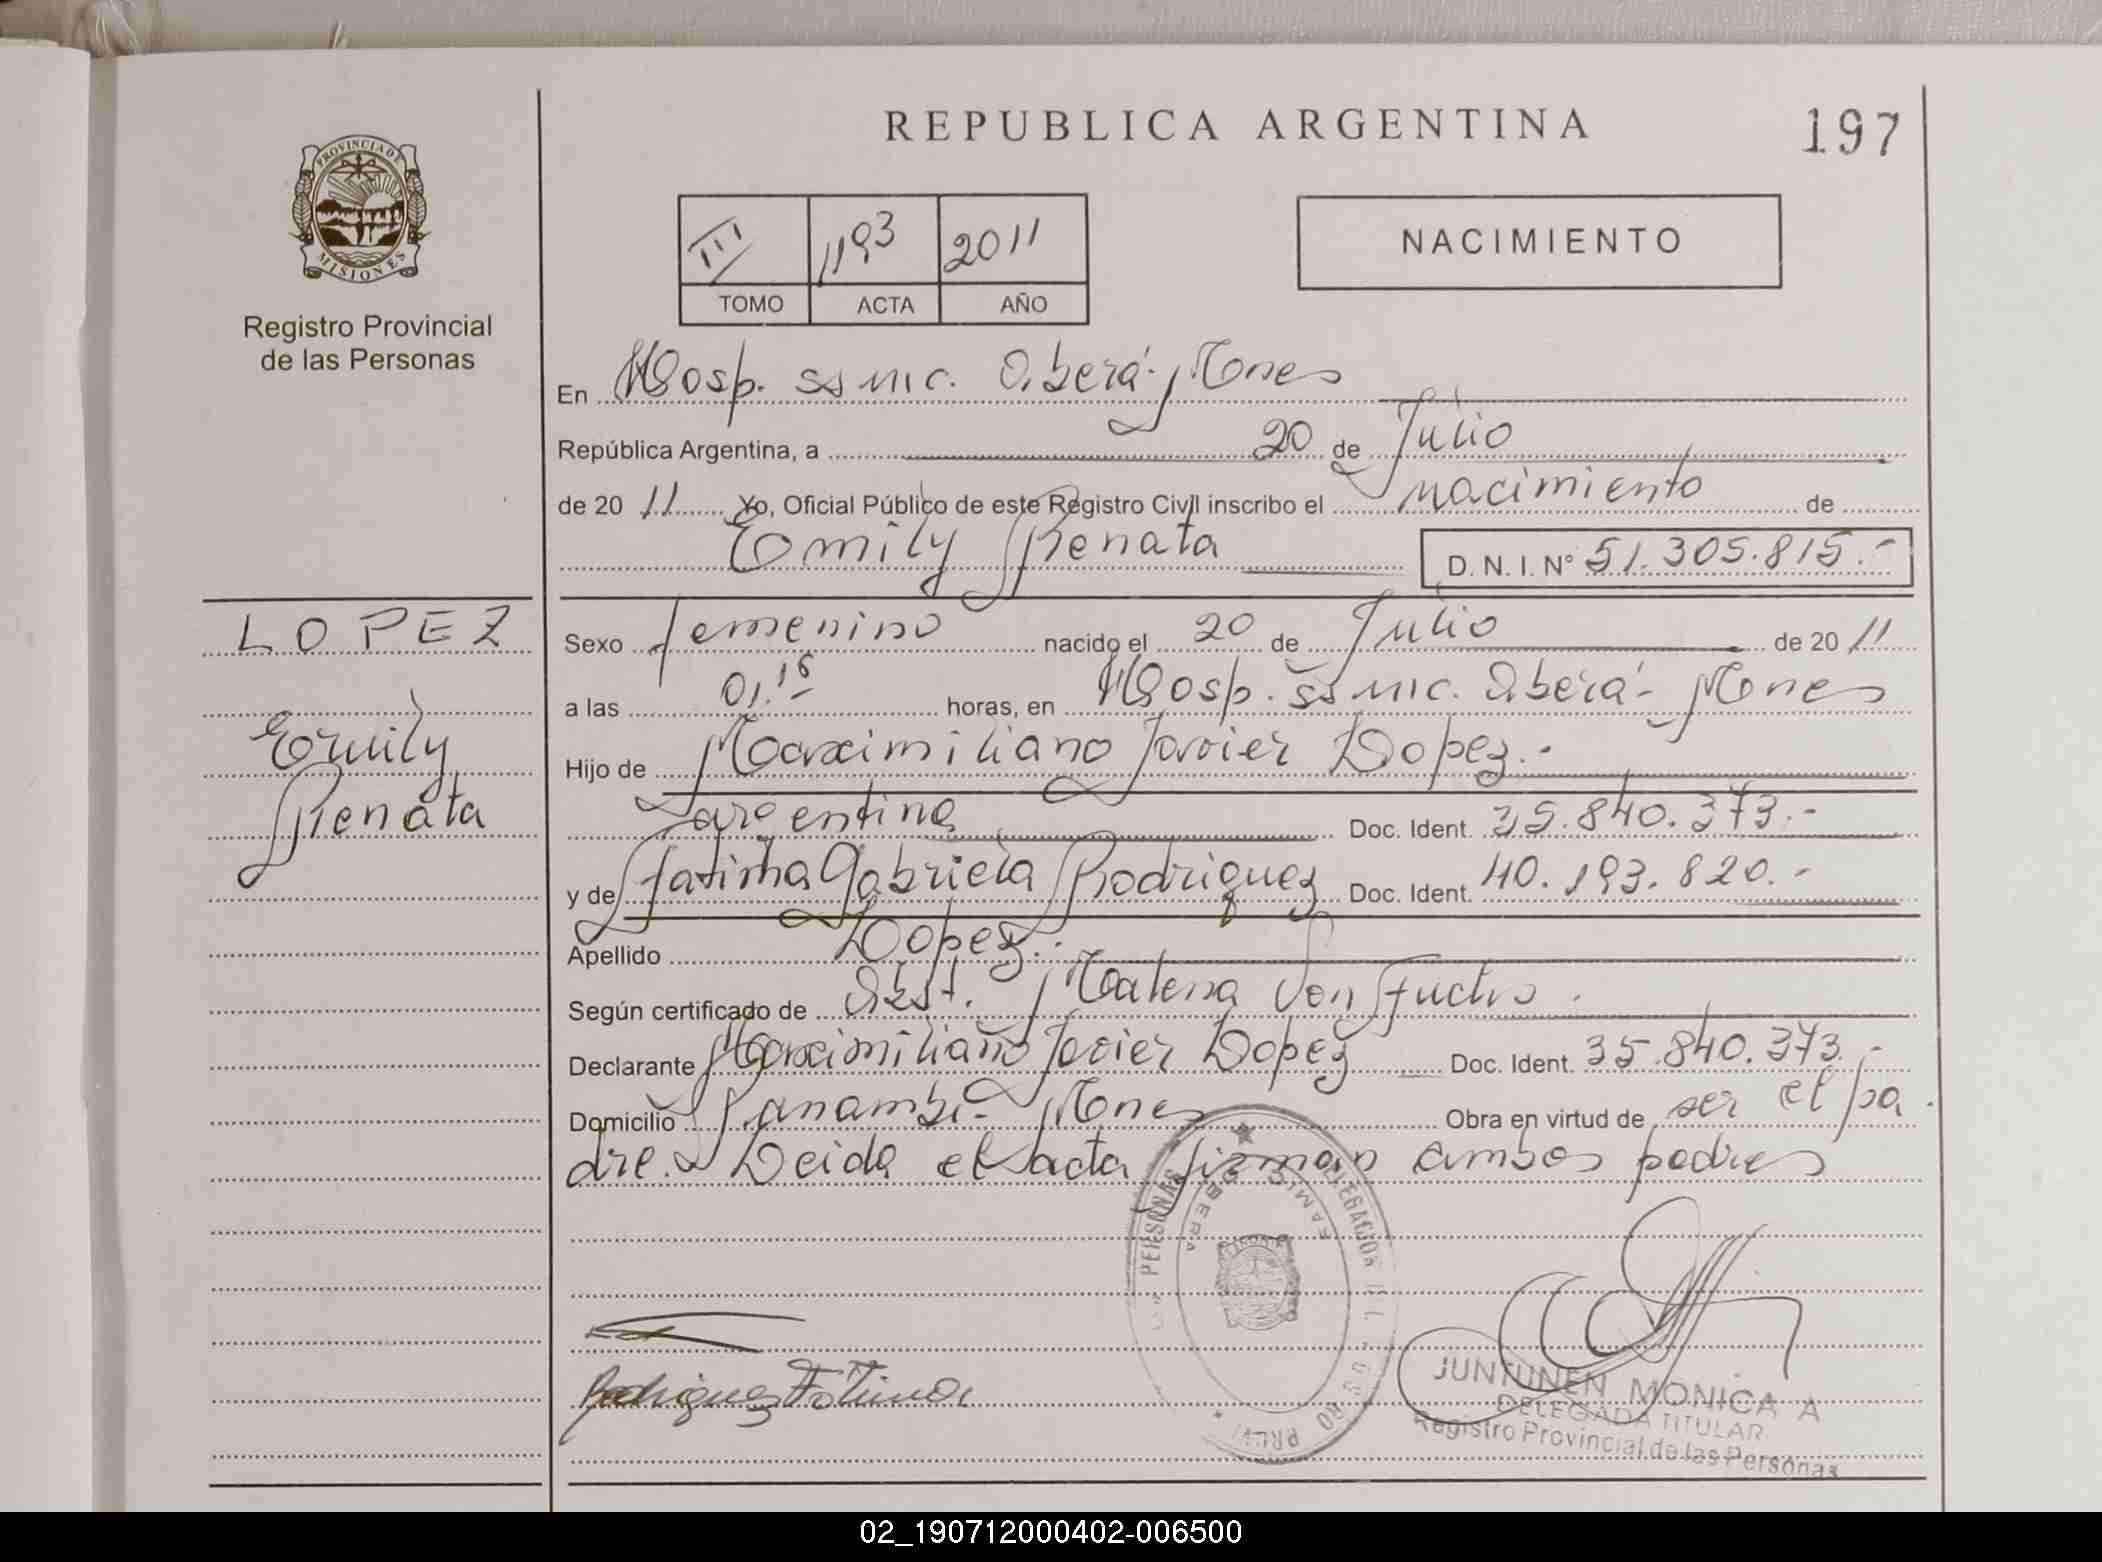 REPUBLICA ARGENTINA
197
PROVINCIA DE
MISIONES
Registro Provincial
de las Personas
III 1193 2011
TOMO ACTA AÑO
NACIMIENTO
En Hosp. ss mc. Oberá - Mnes
República Argentina, a 20 de Julio
de 20 11 Yo, Oficial Público de este Registro Civil inscribo el nacimiento de
Emily Renata D. N. I. Nº 51.305.815.-
LOPEZ
Emily
Renata
Sexo femenino nacido el 20 de Julio de 20 11
a las 01.15 horas, en Hosp. ss mc. Oberá - Mnes
Hijo de Maximiliano Javier Lopez.-
argentina Doc. Ident. 35.840.373.-
y de Fatima Gabriela Rodriguez Doc. Ident. 40.193.820.-
Apellido Lopez.
Según certificado de Obst. Malena Von
Declarante Maximiliano Javier Lopez Doc. Ident. 35.840.373.-
Domicilio Panambi - Mnes Obra en virtud de ser el pa
dre. Leida el acta firman ambos padres
PERSONAS
DELEGACION
OBERA
Rodriguez Fatima
JUNTUNEN MONICA A
DELEGADA TITULAR
Registro Provincial de las Personas
02_190712000402-006500